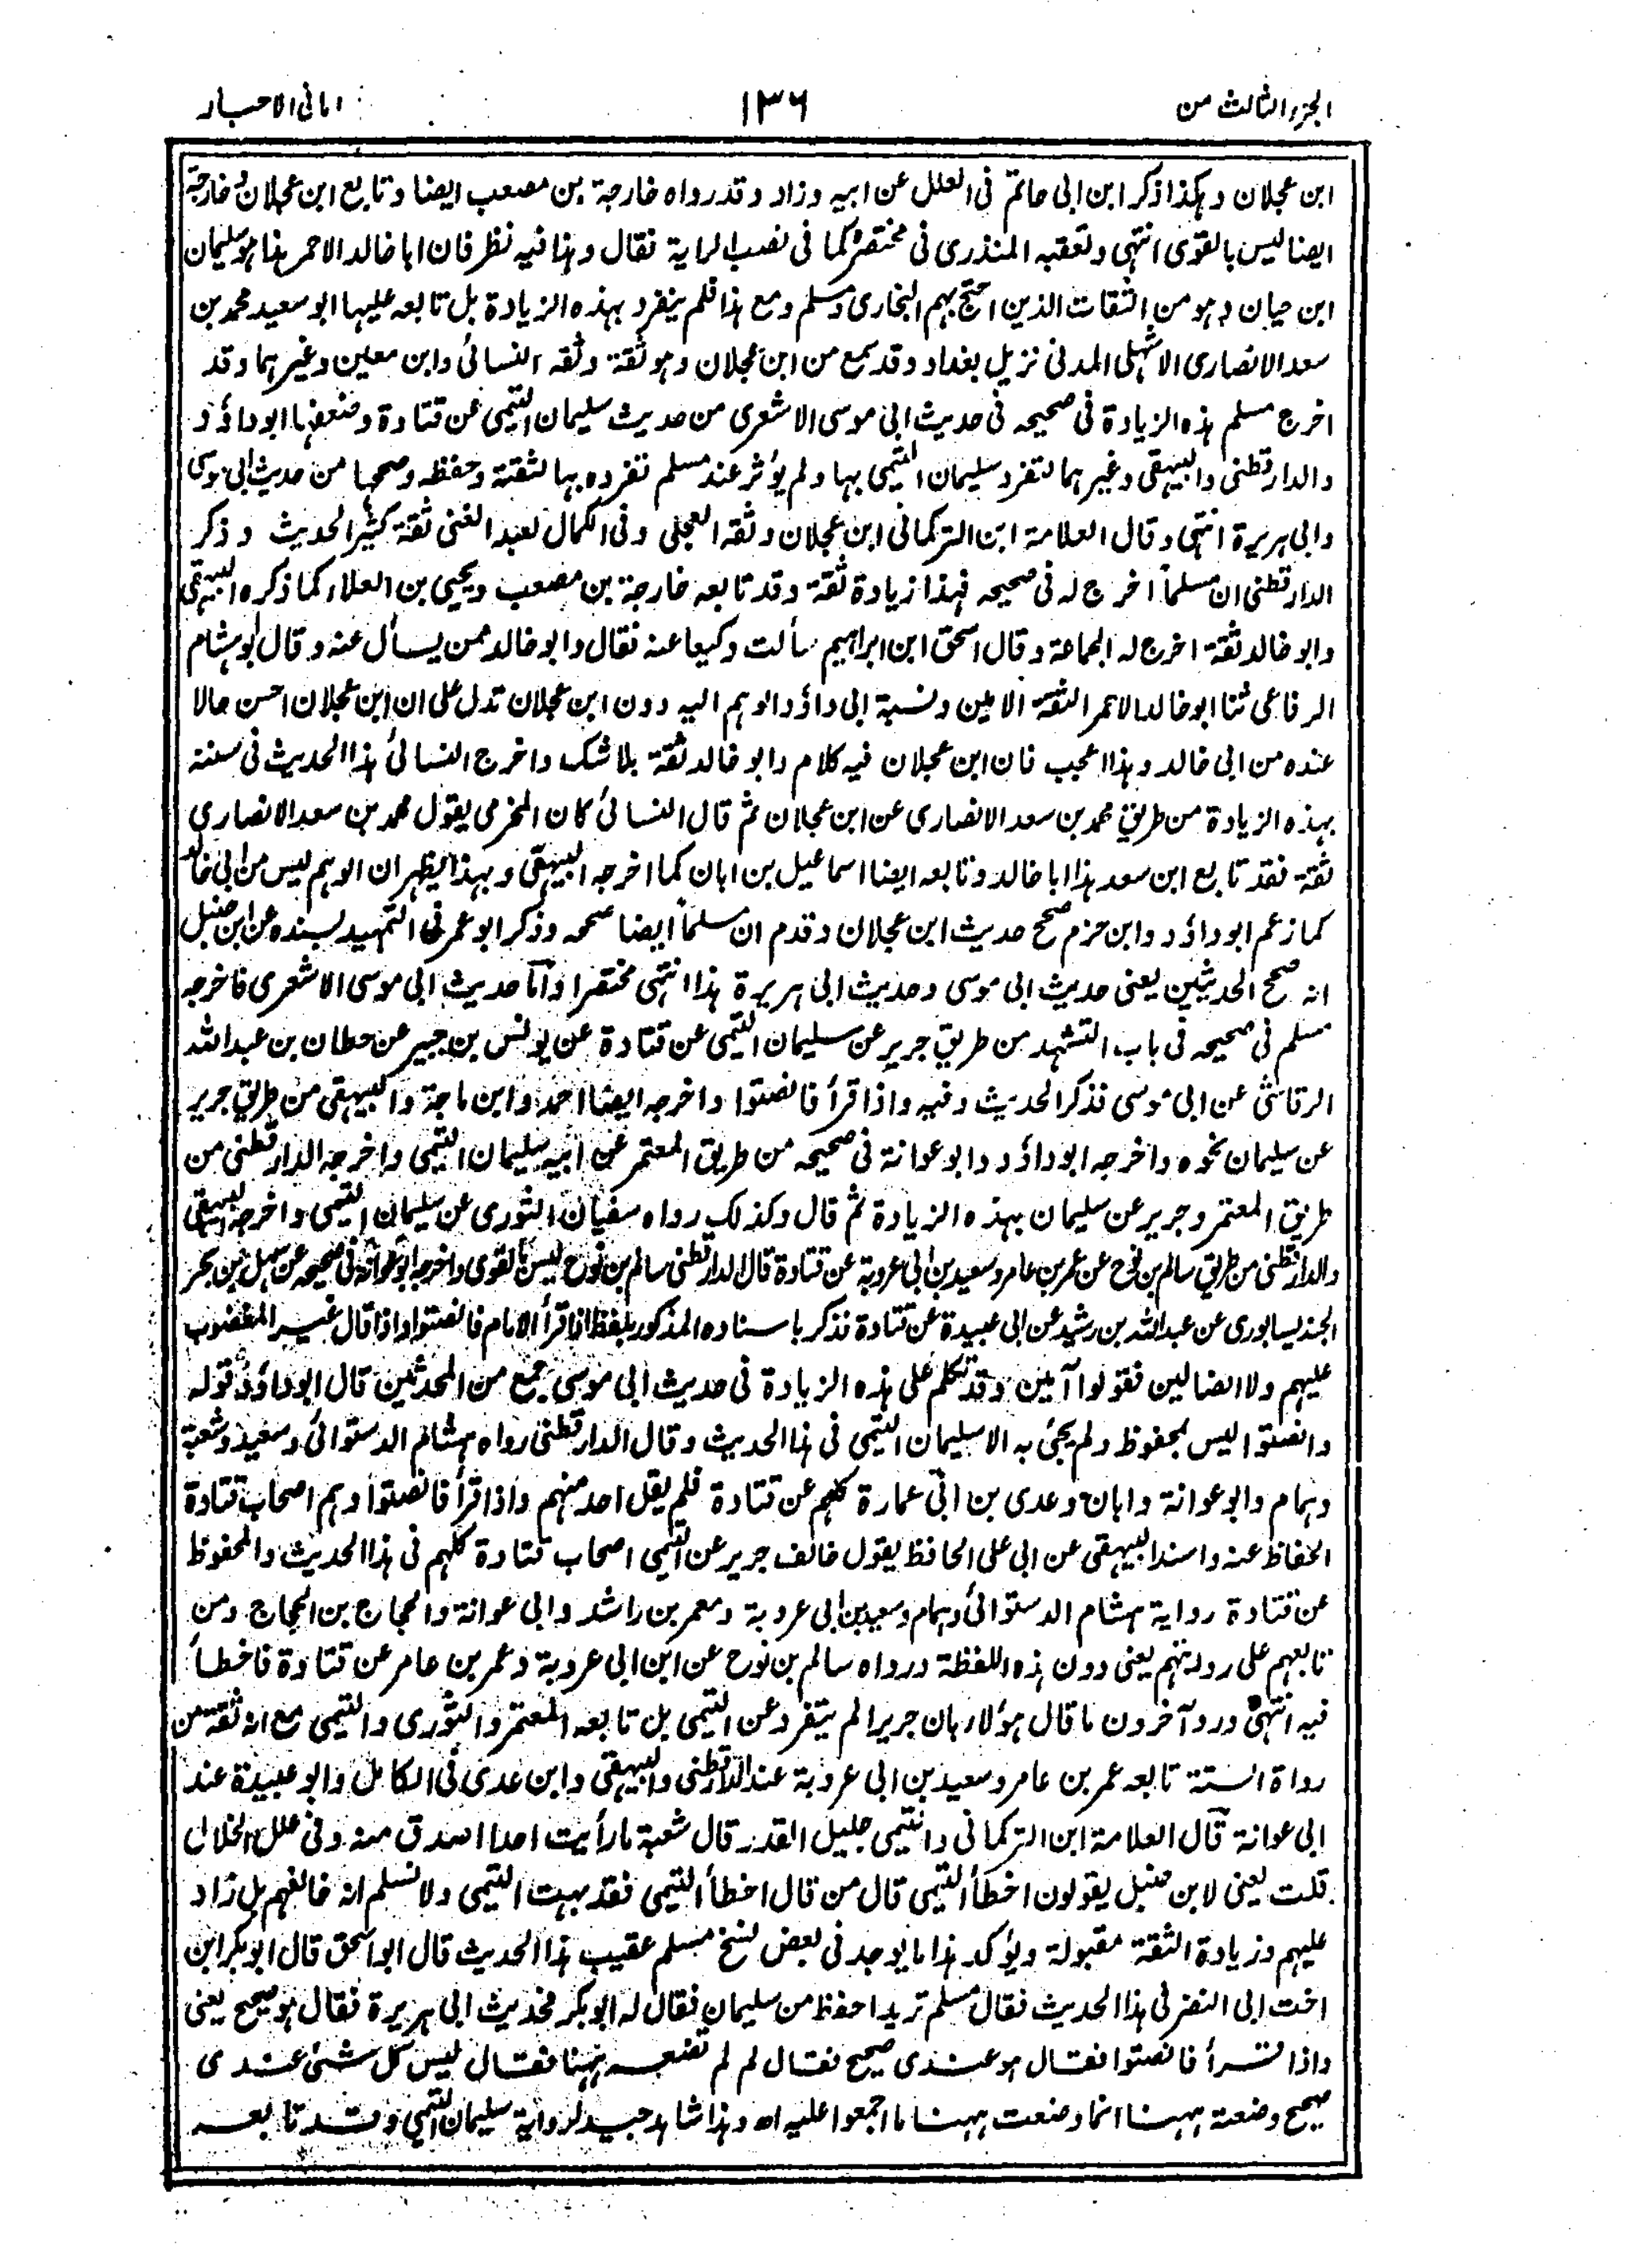 الجزء الثالث من
١٣٦
امانى الاحبار
ابن عجلان وهكذا ذكر ابن ابى حاتم فى العلل عن ابيه وزاد وقد رواه خارجة بن مصعب ايضا وتابع ابن عجلان وخارجة
ايضا ليس بالقوى انتهى وتعقبه المنذرى فى مختصره كما فى نصب الراية فقال وهذا فيه نظر فان ابا خالد الاحمر هذا هو سليمان
ابن حيان وهو من الثقات الذين احتج بهم البخارى ومسلم ومع هذا فلم ينفرد بهذه الزيادة بل تابعه عليها ابو سعيد محمد بن
سعد الانصارى الاشهلى المدنى نزيل بغداد وقد سمع من ابن عجلان وهو ثقة وثقه النسائى وابن معين وغيرهما وقد
اخرج مسلم هذه الزيادة فى صحيحه فى حديث ابى موسى الاشعرى من حديث سليمان التيمى عن قتادة وضعفها ابو داؤد
والدارقطنى والبيهقى وغيرهما لتفرد سليمان التيمى بها ولم يؤثر عند مسلم تفرده بها لثقته وحفظه وصححها من حديث ابى موسى
وابى هريرة انتهى وقال العلامة ابن التركمانى ابن عجلان وثقه العجلى وفى الكمال لعبد الغنى ثقة كثير الحديث وذكر
الدارقطنى ان مسلماً اخرج له فى صحيحه فهذا زيادة ثقة وقد تابعه خارجة بن مصعب ويحيى بن العلاء كما ذكره البيهقى
وابو خالد ثقة اخرج له الجماعة وقال اسحق ابن ابراهيم سألت وكيعا عنه فقال وابو خالد ممن يسأل عنه وقال ابو هشام
الرفاعى ثنا ابو خالد الاحمر الثقة الامين ونسبة ابى داؤد الوهم اليه دون ابن عجلان تدل على ان ابن عجلان احسن حالا
عنده من ابى خالد وهذا عجب فان ابن عجلان فيه كلام وابو خالد ثقة بلا شك واخرج النسائى هذا الحديث فى سننه
بهذه الزيادة من طريق محمد بن سعد الانصارى عن ابن عجلان ثم قال النسائى كان المخرمى يقول محمد بن سعد الانصارى
ثقة فقد تابع ابن سعد هذا ابا خالد وتابعه ايضا اسماعيل بن ابان كما اخرجه البيهقى وبهذا يظهر ان الوهم ليس من ابى خالد
كما زعم ابو داؤد وابن حزم صحح حديث ابن عجلان وقدم ان مسلماً ايضا صححه وذكر ابو عمر فى التمهيد بسنده عن ابن حنبل
انه صحح الحديثين يعنى حديث ابى موسى وحديث ابى هريرة هذا انتهى مختصرا واما حديث ابى موسى الاشعرى فاخرجه
مسلم فى صحيحه فى باب التشهد من طريق جرير عن سليمان التيمى عن قتادة عن يونس بن جبير عن حطان بن عبد الله
الرقاشى عن ابى موسى فذكر الحديث وفيه واذا قرأ فانصتوا واخرجه ايضا احمد وابن ماجة والبيهقى من طريق جرير
عن سليمان نحوه واخرجه ابو داؤد وابو عوانة فى صحيحه من طريق المعتمر عن ابيه سليمان التيمى واخرجه الدارقطنى من
طريق المعتمر وجرير عن سليمان بهذه الزيادة ثم قال وكذلك رواه سفيان الثورى عن سليمان التيمى واخرجه البيهقى
والدارقطنى من طريق سالم بن نوح عن عمر بن عامر وسعيد بن ابى عروبة عن قتادة قال الدارقطنى سالم بن نوح ليس بالقوى واخرجه ابو عوانة فى صحيحه عن سهل بن بحر
الجنديسابورى عن عبد الله بن رشيد عن ابى عبيدة عن قتادة فذكر باسناده المذكور بلفظ اذا قرأ الامام فانصتوا واذا قال غير المغضوب
عليهم ولا الضالين فقولوا آمين وقد تكلم على هذه الزيادة فى حديث ابى موسى جمع من المحدثين قال ابو داؤد قوله
وانصتوا ليس بمحفوظ ولم يجئ به الا سليمان التيمى فى هذا الحديث وقال الدارقطنى رواه هشام الدستوائى وسعيد وشعبة
وهمام وابو عوانة وابان وعدى بن ابى عمارة كلهم عن قتادة فلم يقل احد منهم واذا قرأ فانصتوا وهم اصحاب قتادة
الحفاظ عنه واسند البيهقى عن ابى على الحافظ يقول خالف جرير عن التيمى اصحاب قتادة كلهم فى هذا الحديث والمحفوظ
عن قتادة رواية هشام الدستوائى وهمام وسعيد بن ابى عروبة ومعمر بن راشد وابى عوانة والحجاج بن الحجاج ومن
تابعهم على روايتهم يعنى دون هذه اللفظة ورواه سالم بن نوح عن ابن ابى عروبة وعمر بن عامر عن قتادة فاخطأ
فيه انتهى ورد آخرون ما قال هؤلاء بان جريرا لم يتفرد عن التيمى بل تابعه المعتمر والثورى والتيمى مع انه ثقة من
رواة الستة تابعه عمر بن عامر وسعيد بن ابى عروبة عند الدارقطنى والبيهقى وابن عدى فى الكامل وابو عبيدة عند
ابى عوانة قال العلامة ابن التركمانى والتيمى جليل القدر قال شعبة ما رأيت احدا اصدق منه وفى علل الخلال
قلت يعنى لابن حنبل يقولون اخطأ التيمى قال من قال اخطأ التيمى فقد بهت التيمى ولا نسلم انه خالفهم بل زاد
عليهم وزيادة الثقة مقبولة ويؤكد هذا ما يوجد فى بعض نسخ مسلم عقيب هذا الحديث قال ابو اسحق قال ابو بكر ابن
اخت ابى النضر فى هذا الحديث فقال مسلم تريد احفظ من سليمان فقال له ابو بكر فحديث ابى هريرة فقال هو صحيح يعنى
واذا قرأ فانصتوا فقال هو عندى صحيح فقال لم لم تضعه ههنا فقال ليس كل شئ عندى
صحيح وضعته ههنا انما وضعت ههنا ما اجمعوا عليه اه وهذا شاهد جيد لرواية سليمان التيمى وقد تابعه